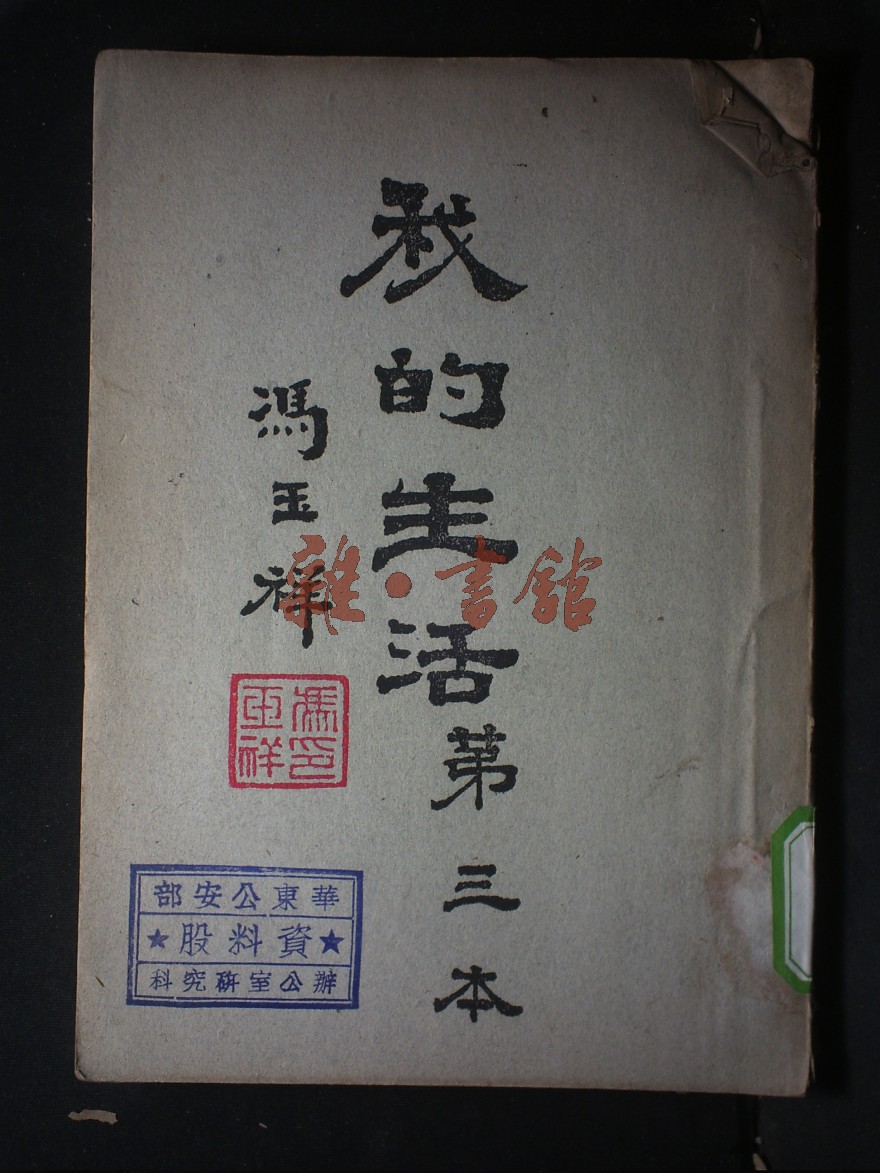 我的生活第三本
馮玉祥
馮玉祥印
華東公安部
資料股
辦公室研究科
雜·書館